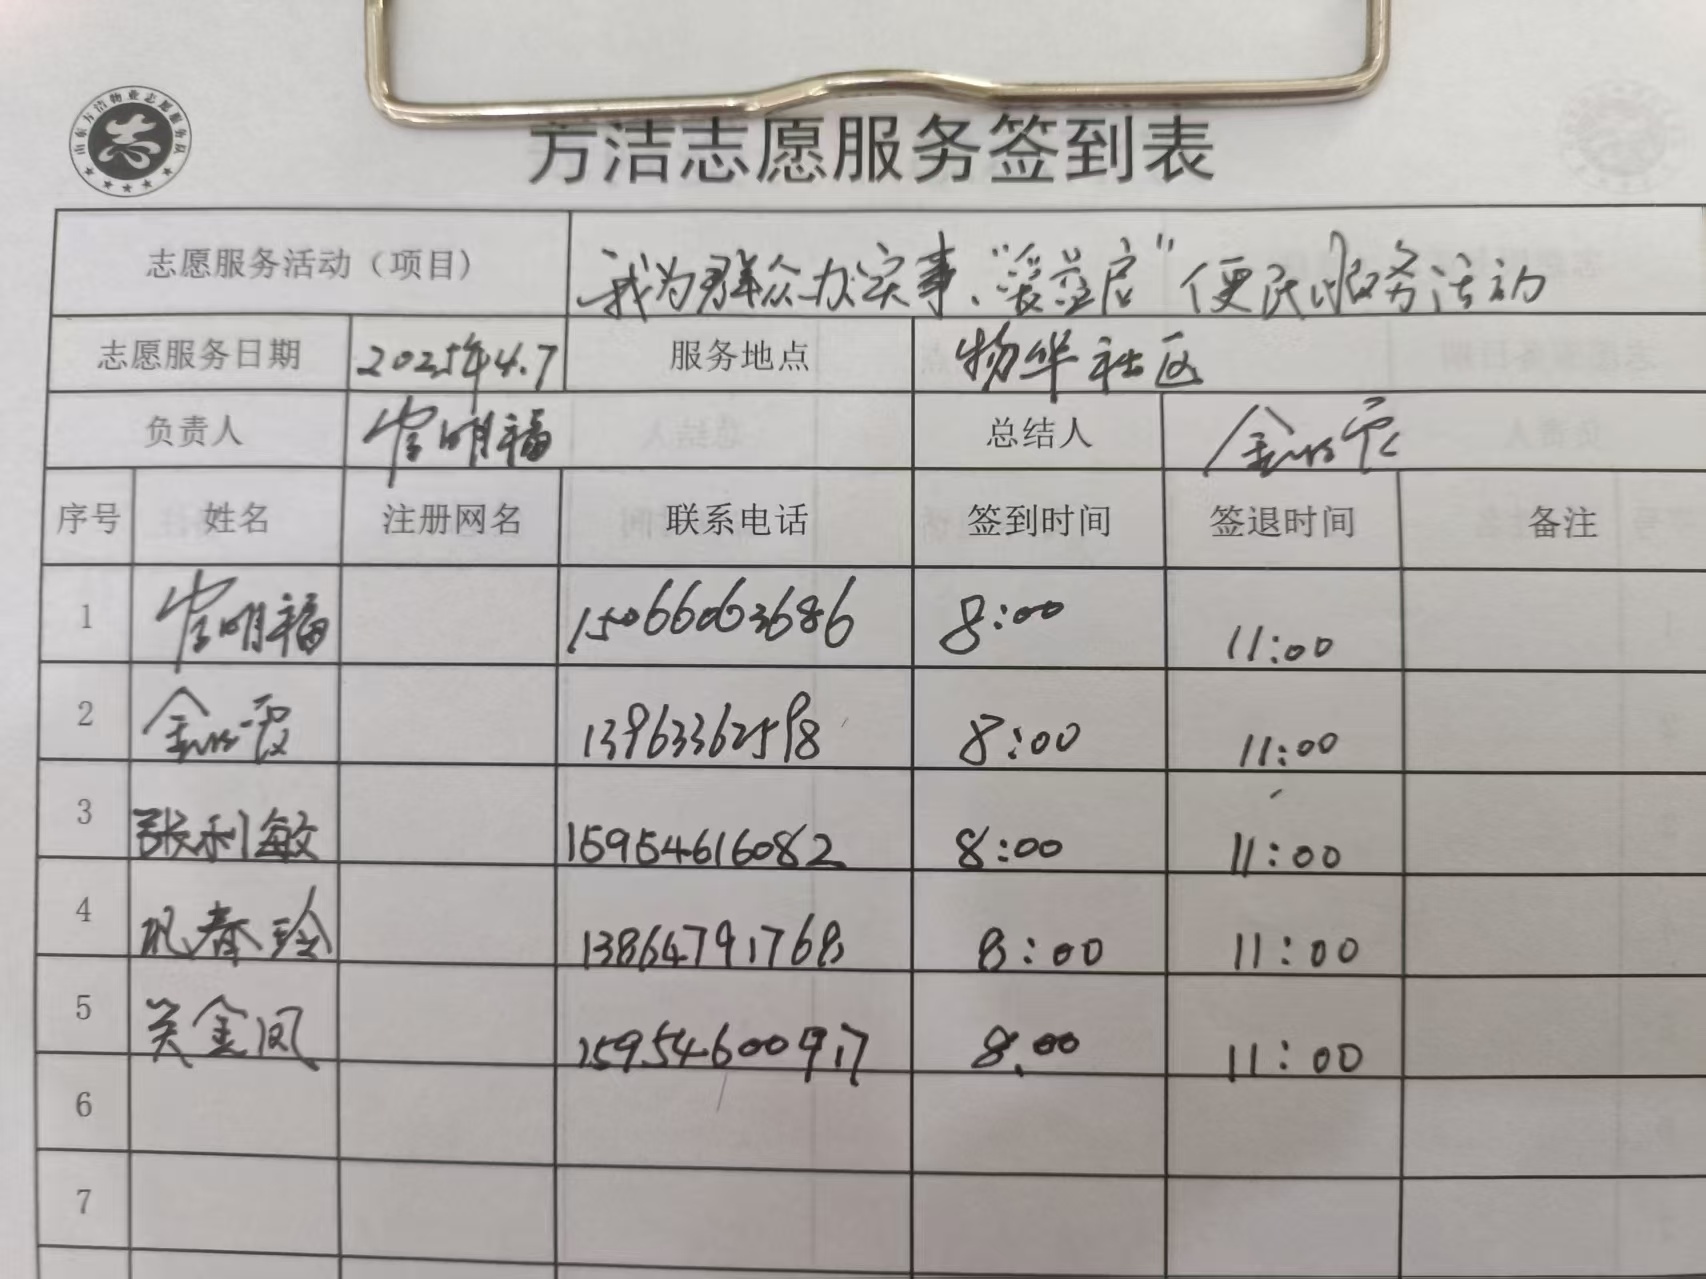 山东方洁物业志愿服务队
方洁志愿服务签到表
志愿服务活动（项目） 我为群众办实事、"爱益启"便民服务活动
志愿服务日期 2025年4.7 服务地点 物华社区
负责人 崔明福 总结人
序号 姓名 注册网名 联系电话 签到时间 签退时间 备注
1 崔明福 15066063686 8:00 11:00
2 13963362598 8:00 11:00
3 张利敏 15954616082 8:00 11:00
4 春玲 13864791768 8:00 11:00
5 关金凤 15954600917 8:00 11:00
6
7